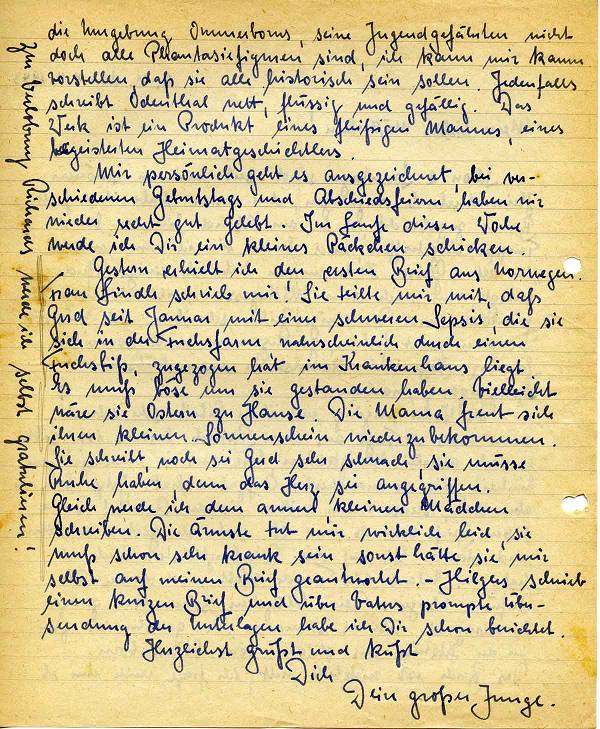 die Umgebung Ommerborns, seine Jugendgefährten nicht
doch alle Phantasiefiguren sind, ich kann mir kaum
vorstellen, daß sie alle historisch sein sollen. Jedenfalls
schreibt Odenthal nett, flüssig und gefällig. Das
Werk ist ein Produkt eines fleißigen Mannes, eines
begeisterten Heimatgeschichtlers.
Mir persönlich geht es ausgezeichnet, bei ver-
schiedenen Geburtstags und Abschiedsfeiern haben wir
wieder recht gut gelebt. Im Laufe dieser Woche
werde ich Dir ein kleines Päckchen schicken.
Gestern erhielt ich den ersten Brief aus Norwegen.
Frau Lindli schrieb mir! Sie teilte mir mit, daß
Gud seit Januar mit einer schweren Sepsis, die sie
sich in der Fuchsfarm wahrscheinlich durch einen
Fuchsbiß, zugezogen hat im Krankenhaus liegt
Es muß böse um sie gestanden haben. Vielleicht
wäre sie Ostern zu Hause. Die Mama freut sich
ihren kleinen Sonnenschein wiederzubekommen.
Sie schreibt, noch sei Gud sehr schwach, sie müsse
Ruhe haben, denn das Herz sei angegriffen.
Gleich werde ich dem armen, kleinen Mädchen
schreiben. Die Ärmste tut mir wirklich leid, sie
muß schon sehr krank sein, sonst hätte sie mir
selbst auf meinen Brief geantwortet. - Hilgers schrieb
einen kurzen Brief und über Vaters prompte Über-
sendung der Unterlagen habe ich Dir schon berichtet.
Herzlichst grüßt und küßt
Dich
Dein großer Junge.
Zur Verlobung Richards werde ich selbst gratulieren!